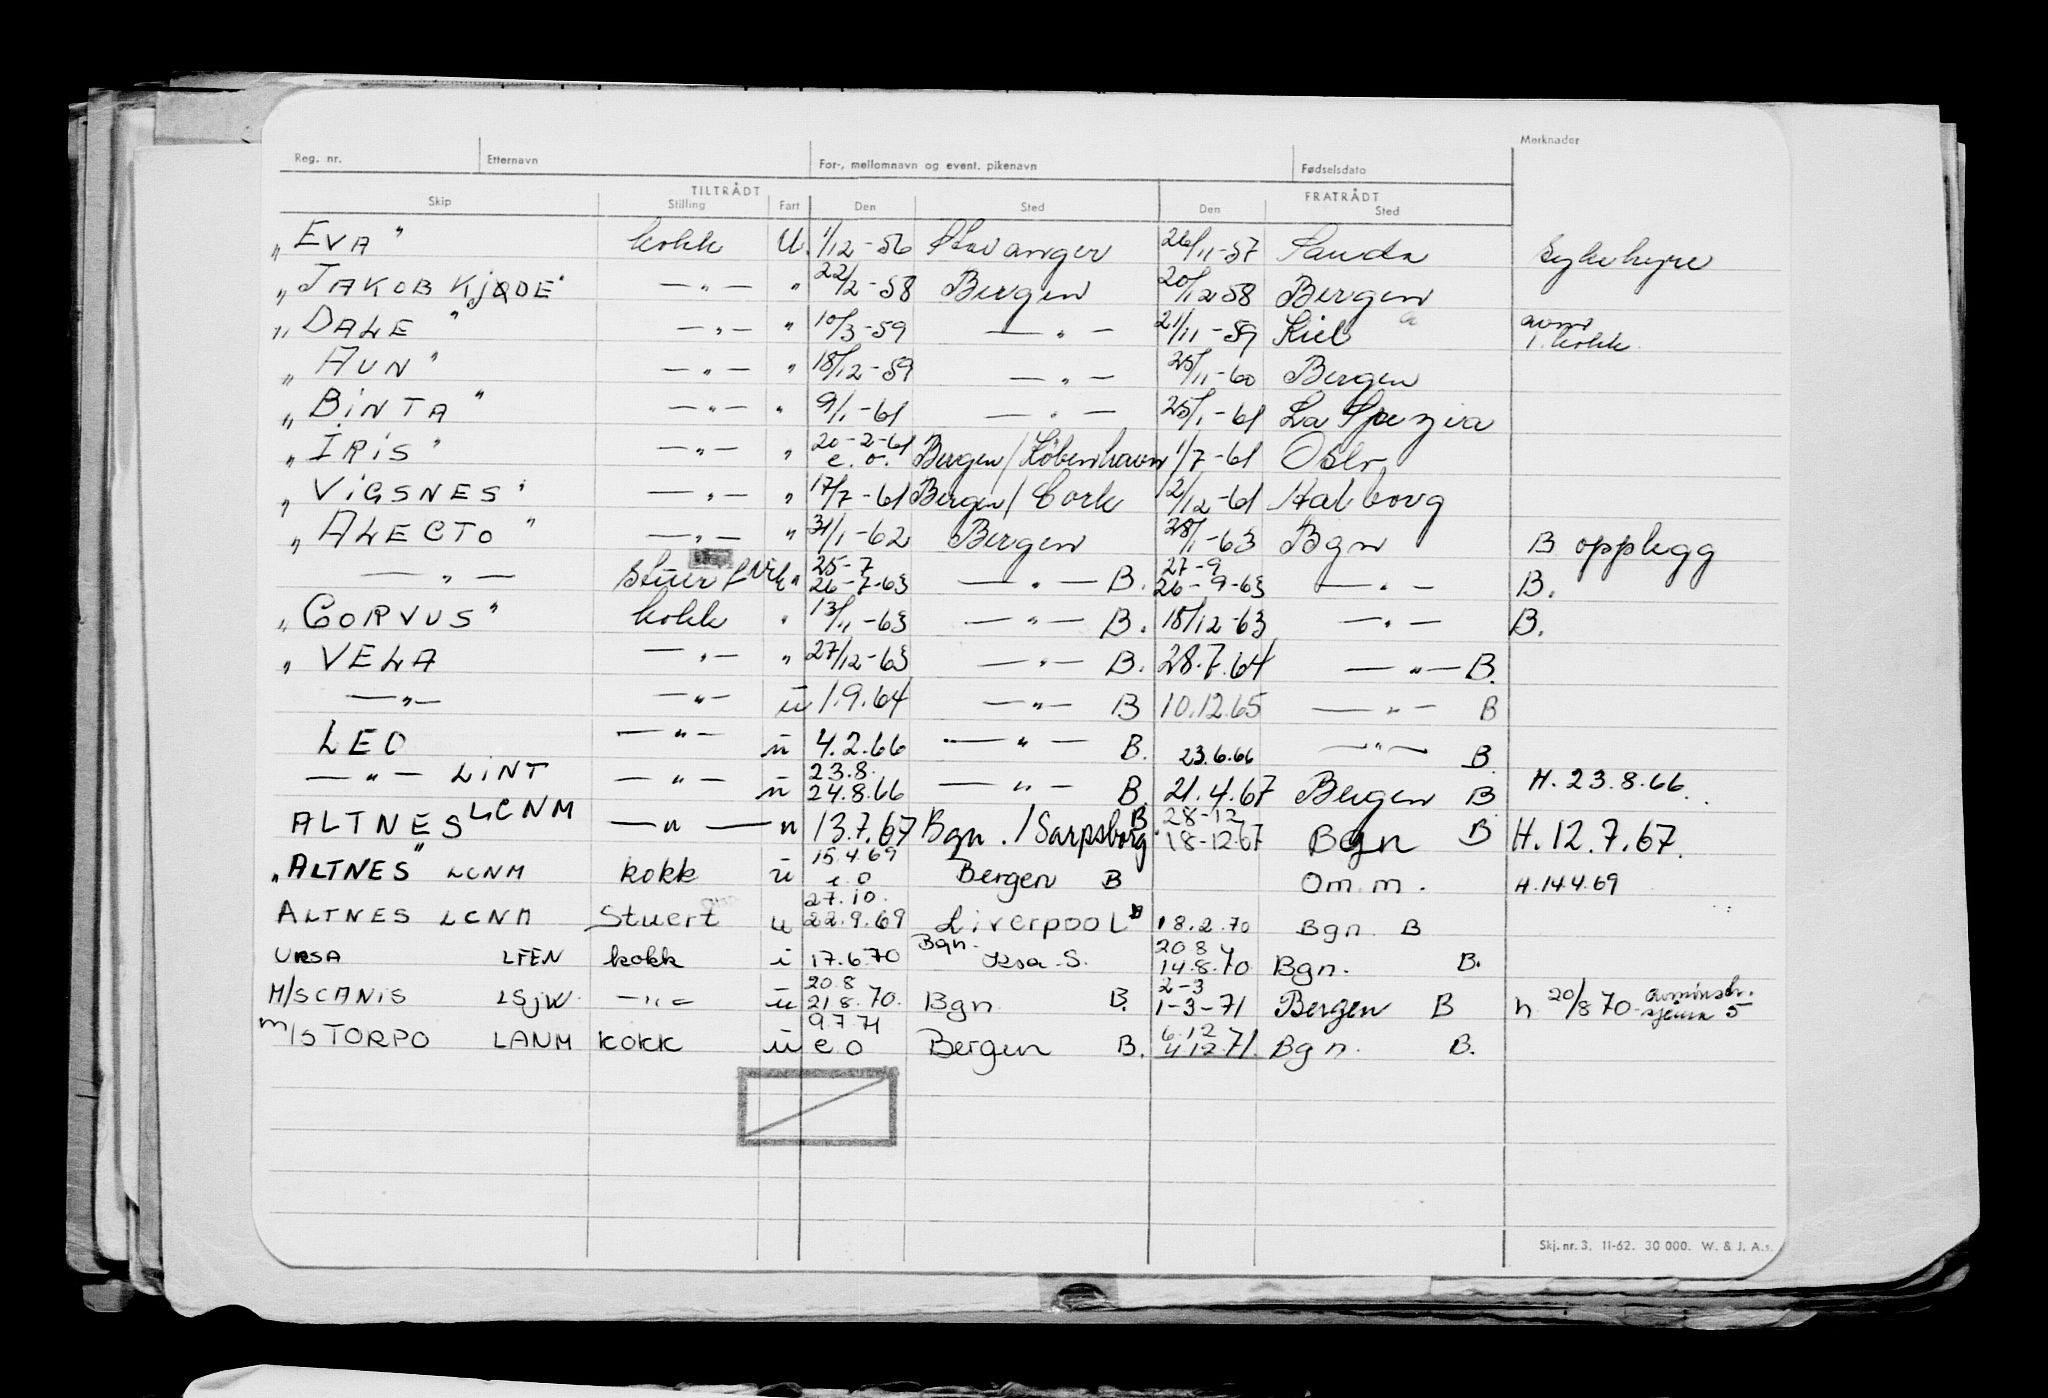 Reg. nr. Etternavn For-, mellomnavn og event. pikenavn Fødselsdato Merknader
TILTRÅDT FRATRÅDT
Skip Stilling Fart Den Sted Den Sted
„ EVA " kokk U. 1/12-56 Stavanger 26/11-57 Sauda sykehyre
„ JAKOB KJØDE" —„— " 22/2-58 Bergen 20/12 58 Bergen
„ DALE " —„— " 10/3-59 —„— 21/11-59 Kiel avm 1. kokk
„ AUN " —„— " 18/12-59 —„— 25/11-60 Bergen
„ BINTA " —„— " 9/1-61 —„— 25/1-61 La Spezia
„ IRIS " —„— " 20-2-61 e.o. Bergen/København 1/7-61 Oslo
„ VIGSNES " —„— " 17/7-61 Bergen/Cork 12/12-61 Aalborg
„ ALECTO " —„— " 31/1-62 Bergen 28/1-63 Bgn B opplegg
—„— Stuert " 25-7 26-7-63 —„— B. 27-9 26-9-63 —„— B.
„ CORVUS " kokk " 13/11-63 —„— B. 18/12-63 —„— B.
„ VELA —„— " 27/12-63 —„— B. 28.7.64 —„— B.
—„— —„— u 1.9.64 —„— B 10.12.65 —„— B
LEO —„— u 4.2.66 —„— B. 23.6.66 —„— B.
—„— LINT —„— u 23.8. 24.8.66 —„— B. 21.4.67 Bergen B H. 23.8.66.
ALTNES LCNM —„— u 13.7.67 Bgn. / Sarpsborg B 28-12 18-12-67 Bgn B H. 12.7.67.
„ALTNES" LCNM kokk u 15.4.69 e.o Bergen B Om.m. H. 14.4.69
ALTNES LCNM Stuert u 27.10. 22.9.69 Liverpool B 18.2.70 Bgn. B
URSA LFEN kokk i 17.6.70 Bgn. Ksa. S. 20.8 14.8.70 Bgn. B.
M/S CANIS LSJW. —„— u 20.8 21.8.70. Bgn. B. 2-3 1-3-71 Bergen B h. 20/8 70
M/S TORPO LANM kokk u 9.7.71 e o Bergen B. 6.12 4.12.71. Bgn. B.
Skj. nr. 3. 11-62. 30 000. W. & J. A.s.